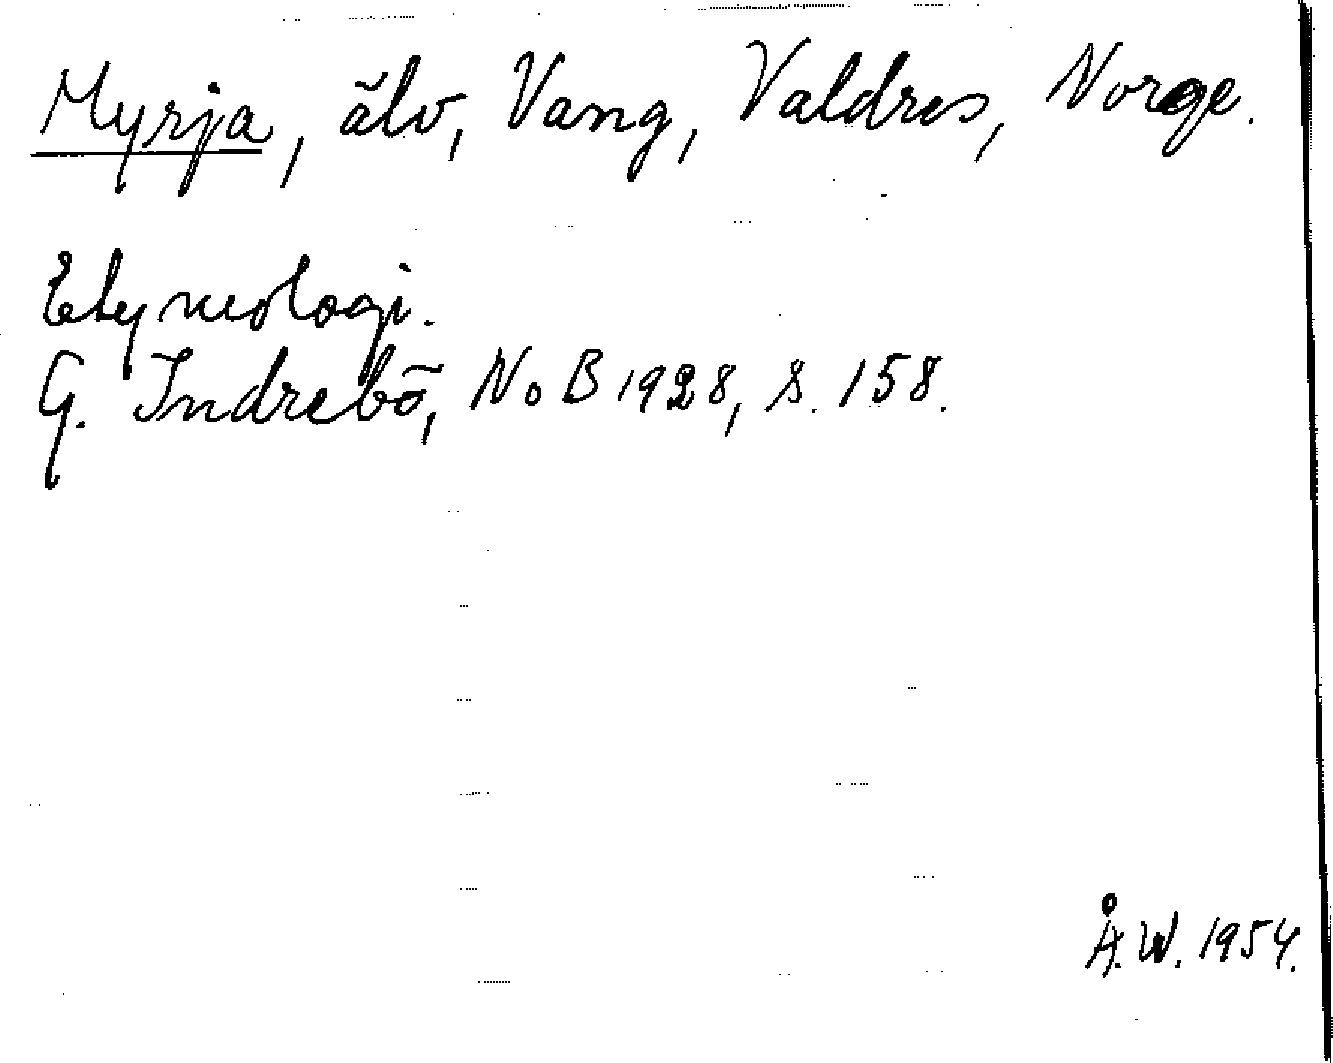 Myrja, älv, Vang, Valdres, Norge.
Etymologi.
G. Indrebö, NoB 1928, s. 158.
Å.W. 1954.